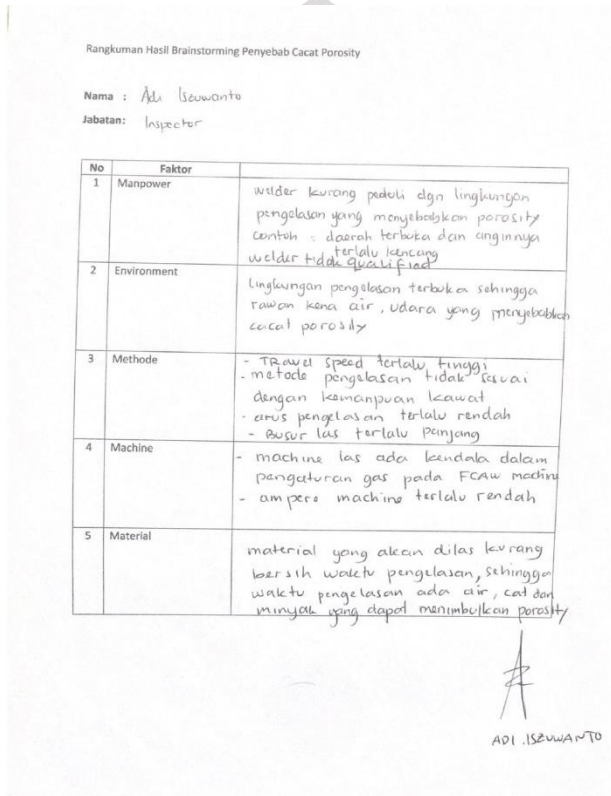 Rangkuman Hasil Brainstorming Penyebab Cacat Porosity
Nama : Adi Iszuwanto
Jabatan: Inspector
No Faktor
1 Manpower
welder kurang peduli dgn lingkungan
pengelasan yang menyebabkan porosity
contoh : daerah terbuka dan anginnya
terlalu kencang
welder tidak qualified
2 Environment
Lingkungan pengelasan terbuka sehingga
rawan kena air, udara yang menyebabkan
cacat porosity
3 Methode
- Travel speed terlalu tinggi
- metode pengelasan tidak sesuai
dengan kemanpuan kawat
- arus pengelasan terlalu rendah
- Busur las terlalu panjang
4 Machine
- machine las ada kendala dalam
pengaturan gas pada FCAW machine
- ampere machine terlalu rendah
5 Material
material yang akan dilas kurang
bersih waktu pengelasan, sehingga
waktu pengelasan ada air, cat dan
minyak yang dapat menimbulkan porosity
ADI .ISZUWANTO